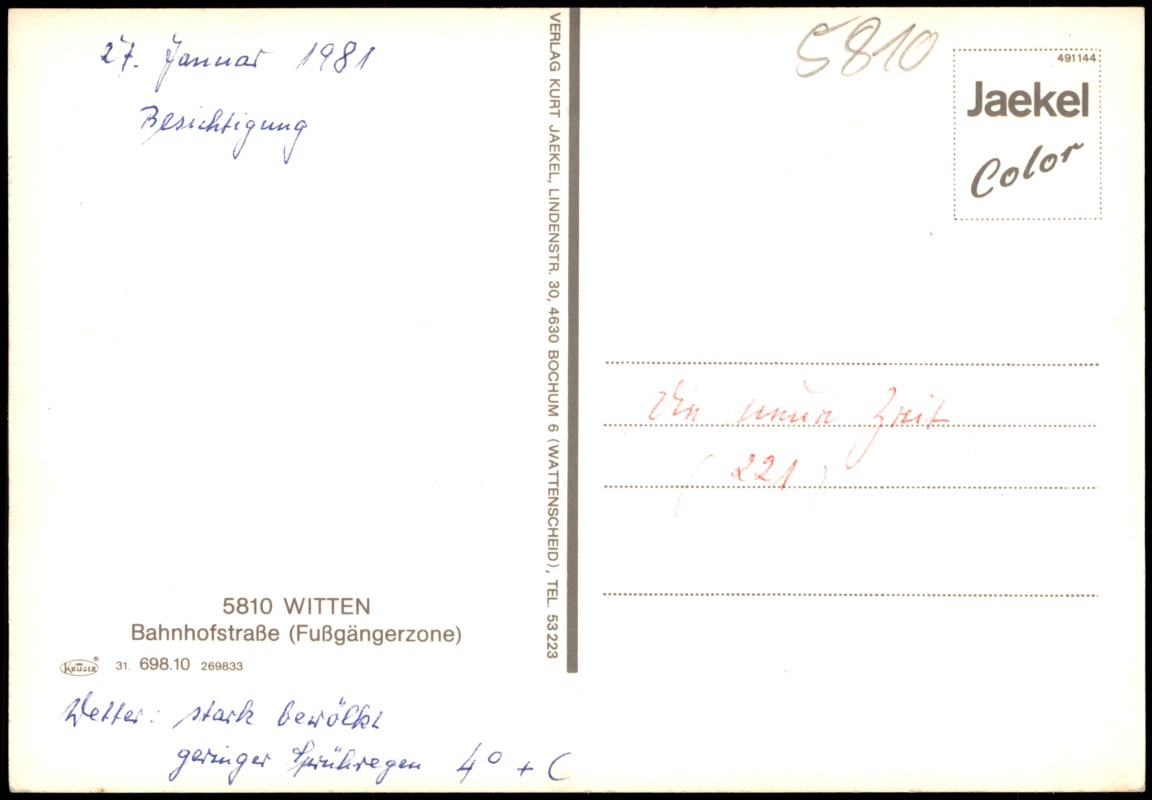 27. Januar 1981
Besichtigung
5810 WITTEN
Bahnhofstraße (Fußgängerzone)
KRÜGER 31. 698.10 269833
Wetter: stark bewölkt
geringer Sprühregen 4° + C
VERLAG KURT JAEKEL, LINDENSTR. 30, 4630 BOCHUM 6 (WATTENSCHEID), TEL. 53 223
5810
491144
Jaekel
Color
Die neue Zeit
(221)